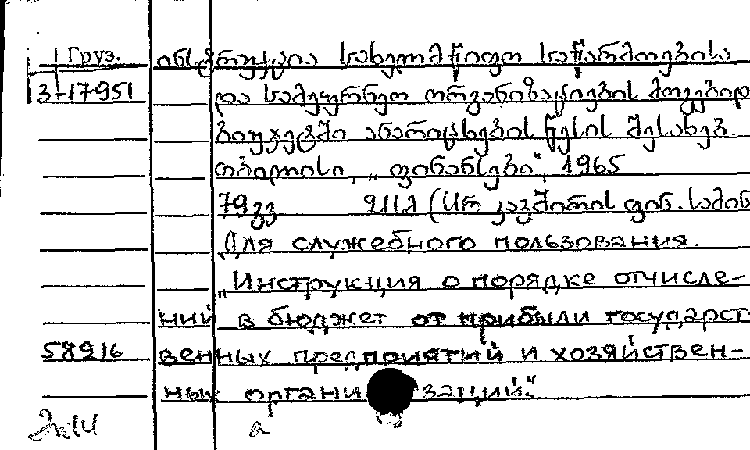 Груз. ინსტრუქცია სახელმწიფო საწარმოებისა
3-17951 და სამეურნეო ორგანიზაციების მოგებიდ
ბიუჯეტში ანარიცხების წესის შესახებ
თბილისი, „ფინანსები“, 1965
79 გვ (სსრ კავშირის ფინ. სამინ
Для служебного пользования.
„Инструкция о порядке отчисле-
ний в бюджет от прибыли государст-
58916 венных предприятий и хозяйствен-
ных организаций."
а